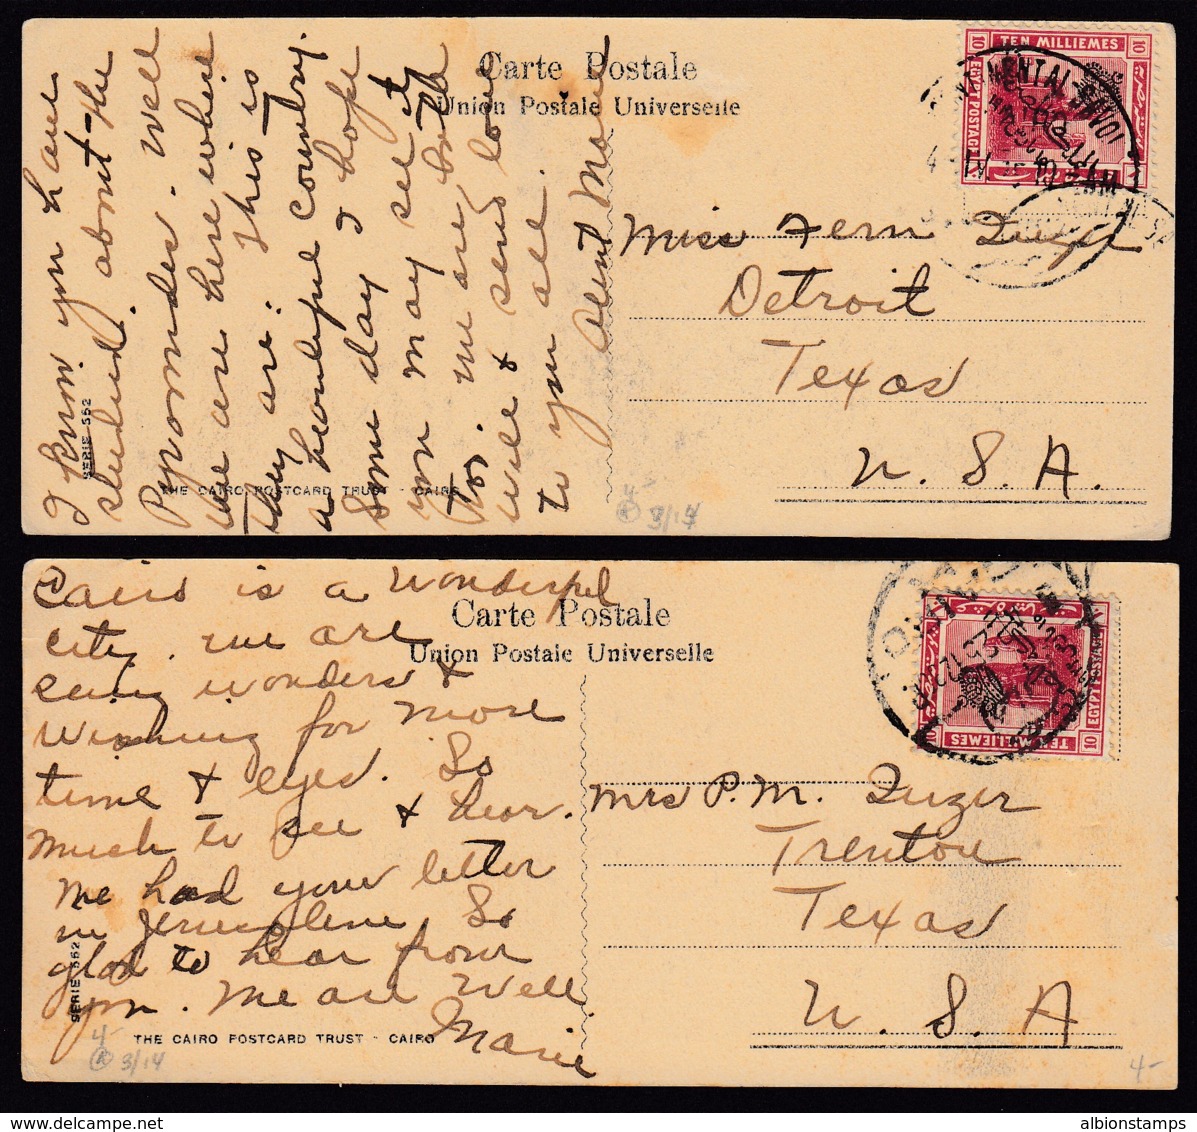 Carte Postale
Union Postale Universelle
TEN MILLIEMES
10 10
EGYPT POSTAGE
CONTINENTAL-SAVOY
I know you have
studied about the
Pyramides. Well
we are here where
they are. This is
a beautiful country.
Some day I hope
you may see it
too. We are both
well & send love
to you all.
Aunt
Miss Fern
Detroit
Texas
U. S. A.
SERIE 562
THE CAIRO POSTCARD TRUST - CAIRO
3/14
Cairo is a wonderful
city. we are
seing wonders &
wishing for more
time & eyes. So
much to see & hear.
We had your letter
in Jerusalem. So
glad to hear from
you. We are well
Marie
Carte Postale
Union Postale Universelle
TEN MILLIEMES
10 10
EGYPT POSTAGE
CAIRO
Mrs P. M.
Trenton
Texas
U. S. A
SERIE 562
THE CAIRO POSTCARD TRUST - CAIRO
4-
3/14
4-
albionstamps